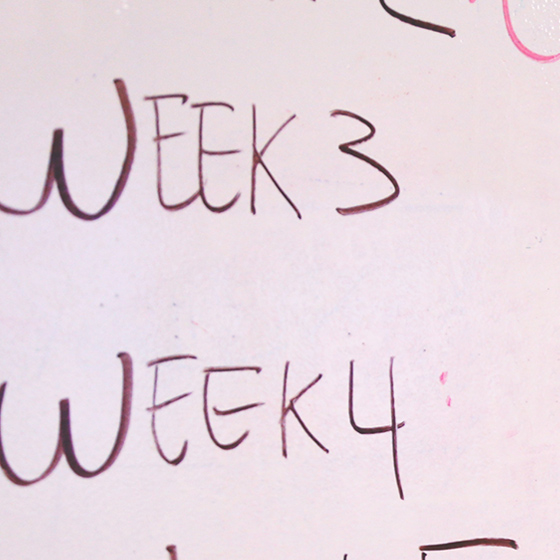 WEEK 3
WEEK 4